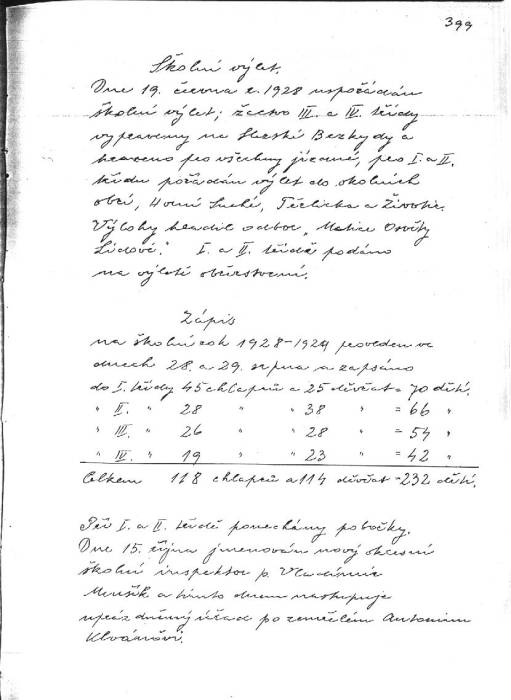 399
Školní výlet.
Dne 19. června r. 1928 uspořádán
školní výlet; žactvo III. a IV. třídy
vypraveno na Slezské Bezkydy a
hrazeno pro všechny jízdné, pro I. a II.
třídu pořádán výlet do okolních
obcí, Horní Suché, Těrlicka a Životic.
Výlohy hradil odbor „Matice Osvěty
Lidové." I. a II. třídě podáno
na výletě občerstvení.
Zápis
na školní rok 1928-1929 proveden ve
dnech 28. a 29. srpna a zapsáno
do I. třídy 45 chlapců a 25 děvčat = 70 dětí.
" II. " 28 " " 38 " = 66 "
" III. " 26 " " 28 " = 54 "
" IV. " 19 " " 23 " = 42 "
Celkem 118 chlapců a 114 děvčat = 232 dětí.
Při I. a II. třídě ponechány pobočky.
Dne 15. října jmenován nový okresní
školní inspektor p. Vladimír
Menšík a tímto dnem nastupuje
uprázdněný úřad po zemřelém Antonínu
Klvaňovi.